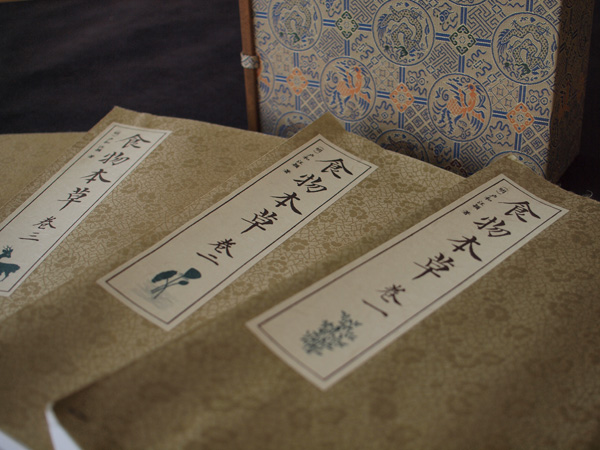 食物本草 卷一
食物本草 卷二
食物本草 卷三